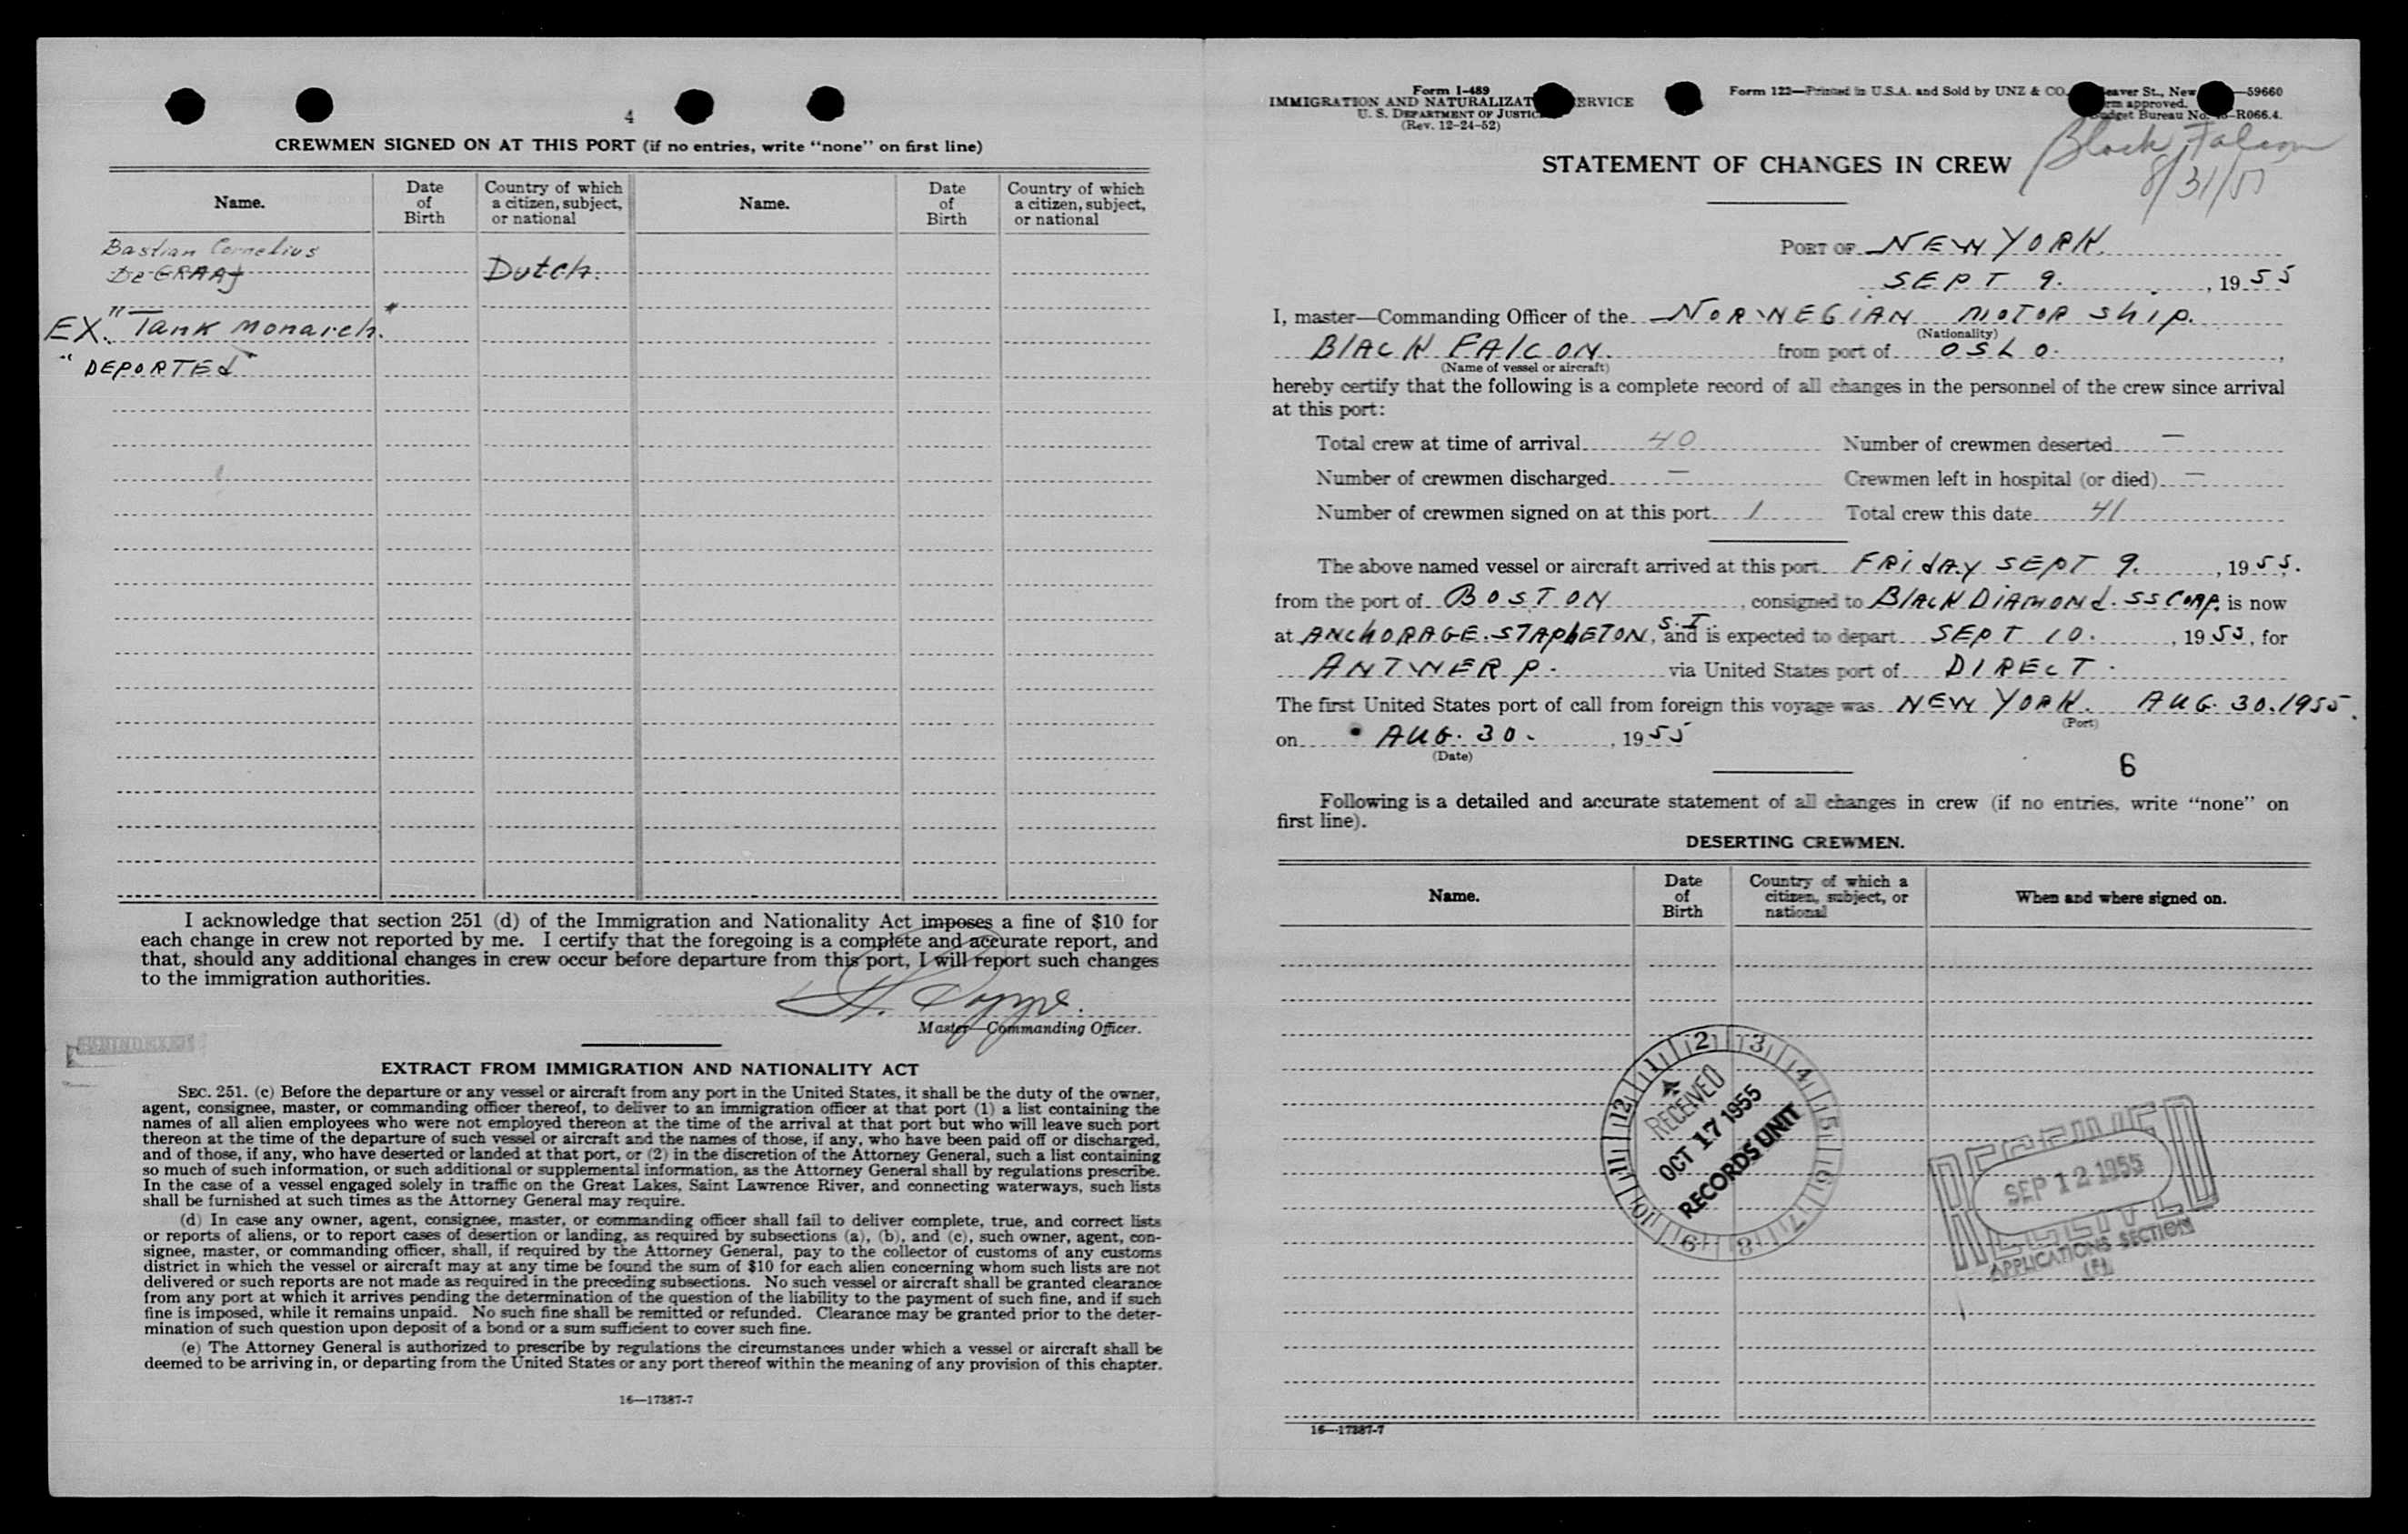 4
CREWMEN SIGNED ON AT THIS PORT (if no entries, write “none” on first line)
Name. Date of Birth Country of which a citizen, subject, or national Name. Date of Birth Country of which a citizen, subject, or national
Bastian Cornelius
De GRAAf Dutch.
EX. "Tank Monarch."
"DEPORTEd"
I acknowledge that section 251 (d) of the Immigration and Nationality Act imposes a fine of $10 for
each change in crew not reported by me. I certify that the foregoing is a complete and accurate report, and
that, should any additional changes in crew occur before departure from this port, I will report such changes
to the immigration authorities.
Master—Commanding Officer.
EXTRACT FROM IMMIGRATION AND NATIONALITY ACT
SEC. 251. (c) Before the departure or any vessel or aircraft from any port in the United States, it shall be the duty of the owner,
agent, consignee, master, or commanding officer thereof, to deliver to an immigration officer at that port (1) a list containing the
names of all alien employees who were not employed thereon at the time of the arrival at that port but who will leave such port
thereon at the time of the departure of such vessel or aircraft and the names of those, if any, who have been paid off or discharged,
and of those, if any, who have deserted or landed at that port, or (2) in the discretion of the Attorney General, such a list containing
so much of such information, or such additional or supplemental information, as the Attorney General shall by regulations prescribe.
In the case of a vessel engaged solely in traffic on the Great Lakes, Saint Lawrence River, and connecting waterways, such lists
shall be furnished at such times as the Attorney General may require.
(d) In case any owner, agent, consignee, master, or commanding officer shall fail to deliver complete, true, and correct lists
or reports of aliens, or to report cases of desertion or landing, as required by subsections (a), (b), and (c), such owner, agent, con-
signee, master, or commanding officer, shall, if required by the Attorney General, pay to the collector of customs of any customs
district in which the vessel or aircraft may at any time be found the sum of $10 for each alien concerning whom such lists are not
delivered or such reports are not made as required in the preceding subsections. No such vessel or aircraft shall be granted clearance
from any port at which it arrives pending the determination of the question of the liability to the payment of such fine, and if such
fine is imposed, while it remains unpaid. No such fine shall be remitted or refunded. Clearance may be granted prior to the deter-
mination of such question upon deposit of a bond or a sum sufficient to cover such fine.
(e) The Attorney General is authorized to prescribe by regulations the circumstances under which a vessel or aircraft shall be
deemed to be arriving in, or departing from the United States or any port thereof within the meaning of any provision of this chapter.
16—17387-7
Form I-489
IMMIGRATION AND NATURALIZAT ERVICE
U. S. DEPARTMENT OF JUSTIC
(Rev. 12-24-52)
Form 122—Printed in U.S.A. and Sold by UNZ & CO. eaver St., New —59660
rm approved.
dget Bureau No. —R066.4.
Black Falcon
8/31/55
STATEMENT OF CHANGES IN CREW
PORT OF NEW YORK.
SEPT 9. , 1955
I, master—Commanding Officer of the NORWEGIAN MOTOR Ship.
(Nationality)
BlACK FAlCON. from port of OSLO. ,
(Name of vessel or aircraft)
hereby certify that the following is a complete record of all changes in the personnel of the crew since arrival
at this port:
Total crew at time of arrival 40 Number of crewmen deserted —
Number of crewmen discharged — Crewmen left in hospital (or died) —
Number of crewmen signed on at this port 1 Total crew this date 41
The above named vessel or aircraft arrived at this port FRidAY SEPT 9. , 1955.
from the port of BOSTON , consigned to BlACK DIAMONd. SS CORP. is now
at ANChORAGE. STAPLETON, S.I. and is expected to depart SEPT 10. , 1955, for
ANTWERP. via United States port of DIRECT.
The first United States port of call from foreign this voyage was NEW YORK. AUG. 30. 1955.
(Port)
on AUG. 30. , 1955
(Date)
6
Following is a detailed and accurate statement of all changes in crew (if no entries, write “none” on
first line).
DESERTING CREWMEN.
Name. Date of Birth Country of which a citizen, subject, or national When and where signed on.
RECEIVED
OCT 17 1955
RECORDS UNIT
12 1 2 3 4 5 6 7 8 9 10 11
SEP 12 1955
APPLICATIONS SECTION
16—17387-7